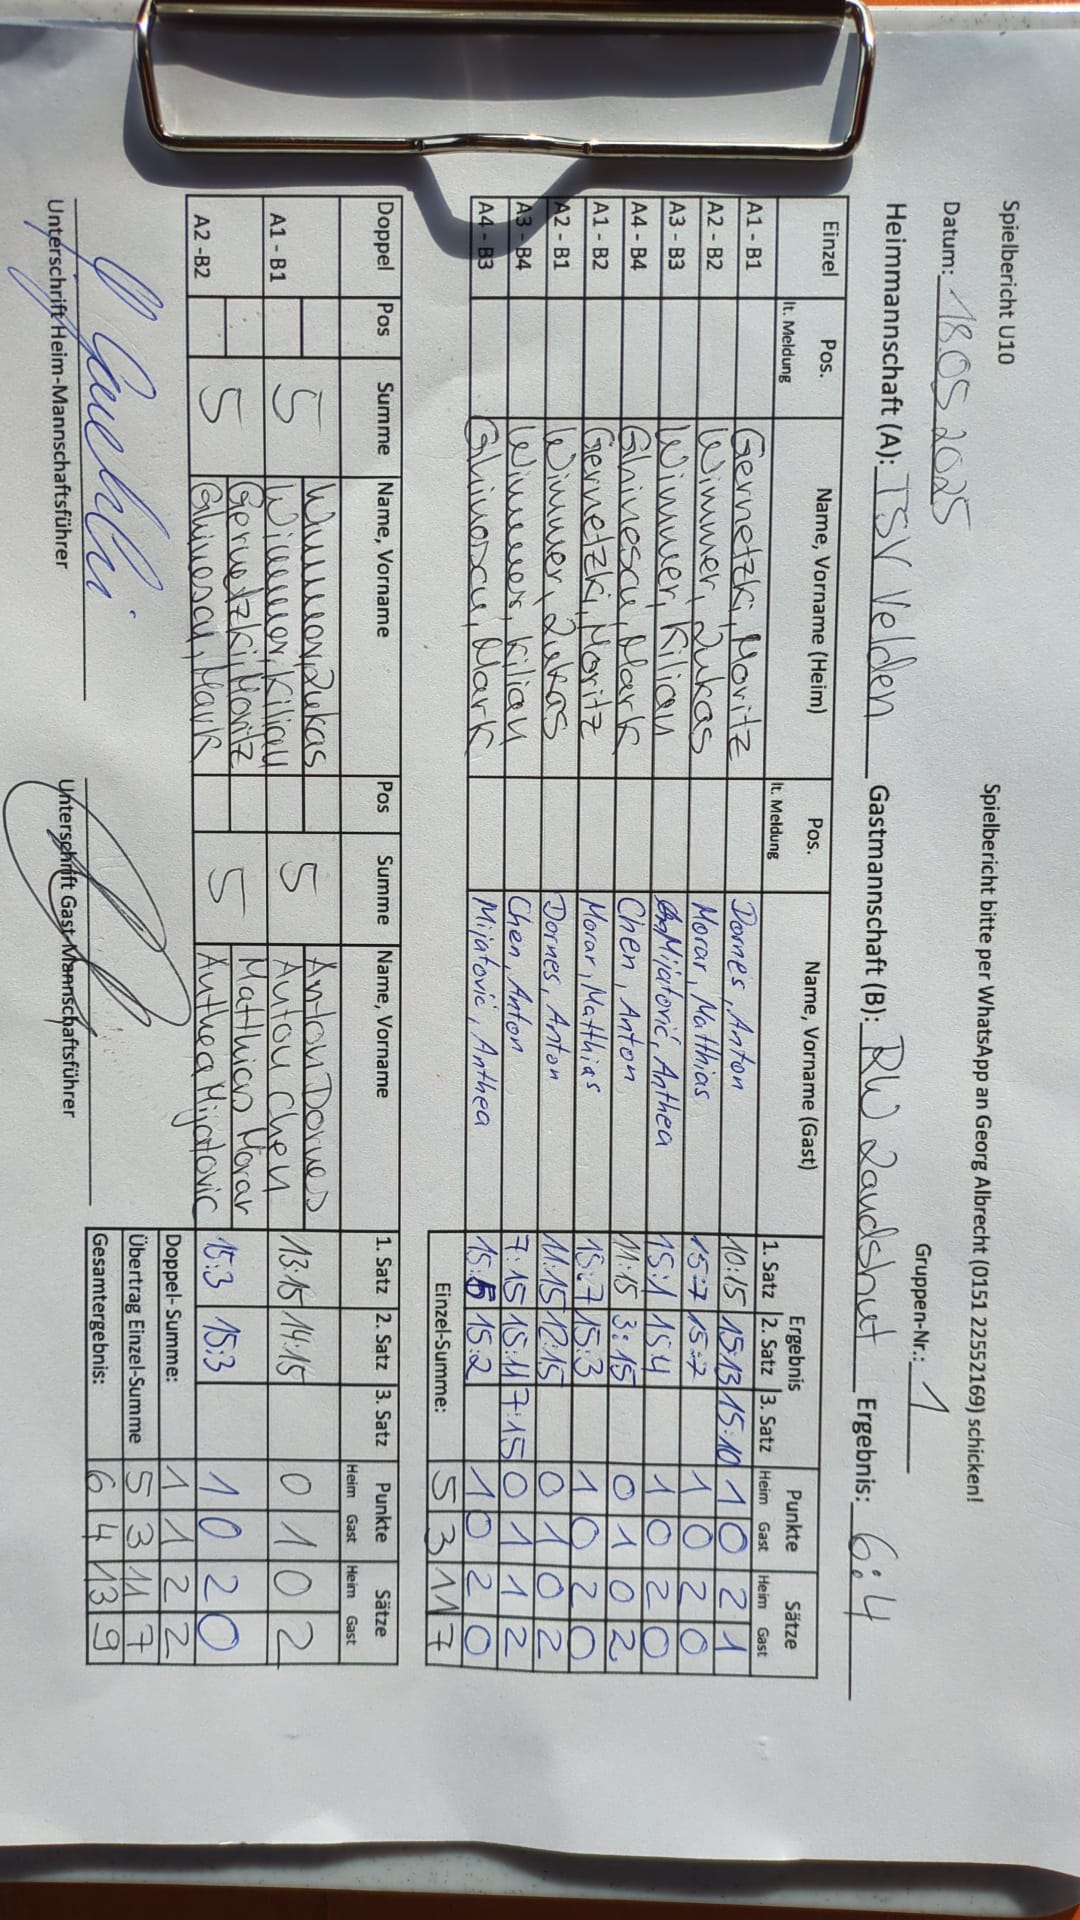 Spielbericht U10
Spielbericht bitte per WhatsApp an Georg Albrecht (0151 22552169) schicken!
Datum: 18.05.2025 Gruppen-Nr.: 1
Heimmannschaft (A): TSV Velden Gastmannschaft (B): RW Landshut Ergebnis: 6:4
Einzel Pos. Name, Vorname (Heim) Pos. Name, Vorname (Gast) Ergebnis Punkte Sätze
lt. Meldung lt. Meldung 1. Satz 2. Satz 3. Satz Heim Gast Heim Gast
A1 - B1 Gernetzki, Moritz Dornes, Anton 10:15 15:13 15:10 1 0 2 1
A2 - B2 Wimmer, Lukas Morar, Matthias 15:7 15:7 1 0 2 0
A3 - B3 Wimmer, Kilian Mijatović, Anthea 15:1 15:4 1 0 2 0
A4 - B4 Ghinescu, Mark Chen, Anton 11:15 3:15 0 1 0 2
A1 - B2 Gernetzki, Moritz Morar, Matthias 15:7 15:3 1 0 2 0
A2 - B1 Wimmer, Lukas Dornes, Anton 11:15 12:15 0 1 0 2
A3 - B4 Wimmer, Kilian Chen, Anton 7:15 15:11 7:15 0 1 1 2
A4 - B3 Ghinescu, Mark Mijatović, Anthea 15:5 15:2 1 0 2 0
Einzel-Summe: 5 3 11 7
Doppel Pos Summe Name, Vorname Pos Summe Name, Vorname 1. Satz 2. Satz 3. Satz Punkte Sätze
Heim Gast Heim Gast
A1 - B1 5 Wimmer, Lukas 5 Anton Dornes 13:15 14:15 0 1 0 2
Wimmer, Kilian Anton Chen
A2 -B2 5 Gernetzki, Moritz 5 Matthias Morar 15:3 15:3 1 0 2 0
Ghinescu, Mark Anthea Mijatovic
Doppel- Summe: 1 1 2 2
Übertrag Einzel-Summe 5 3 11 7
Gesamtergebnis: 6 4 13 9
Unterschrift Heim-Mannschaftsführer Unterschrift Gast-Mannschaftsführer